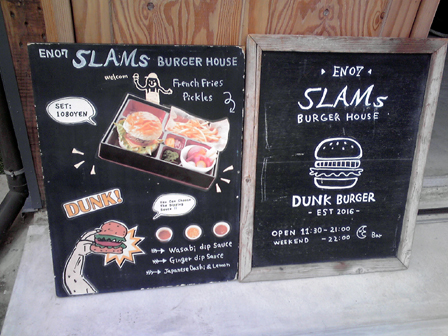 ENO7 SLAMs BURGER HOUSE
welcom
French Fries
Pickles
SET:
1080YEN
DUNK!
You Can Choose
The Dipping
Sauce !!
Wasabi dip Sauce
Ginger dip Sauce
Japanese Dashi & Lemon
ENO7
SLAMs
BURGER HOUSE
DUNK BURGER
- EST 2016 -
OPEN 11:30 - 21:00
WEEKEND - 22:00
Bar